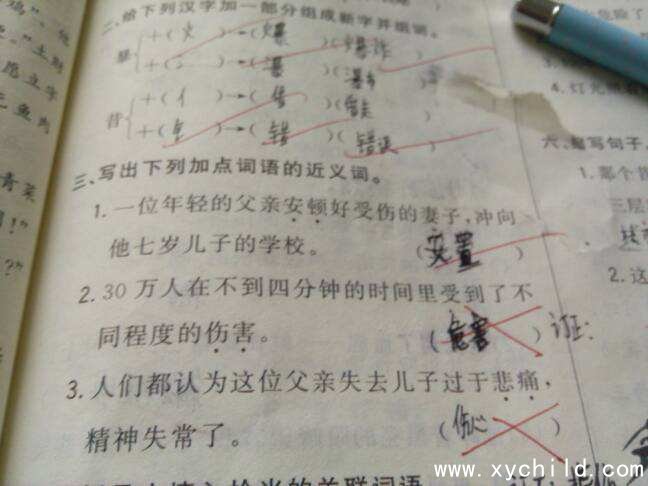 二、给下列汉字加一部分组成新字并组词。
暴 +(火)→(爆)(爆炸)
+(氵)→(瀑)(瀑布)
昔 +(亻)→(借)(借走)
+(钅)→(错)(错误)
三、写出下列加点词语的近义词。
1.一位年轻的父亲安顿好受伤的妻子,冲向
他七岁儿子的学校。 (安置)
2.30万人在不到四分钟的时间里受到了不
同程度的伤害。 (危害) 订正:
3.人们都认为这位父亲失去儿子过于悲痛,
精神失常了。 (伤心)
www.xychild.com
青菜
六、
1.那个
三层
2.这
4.灯光